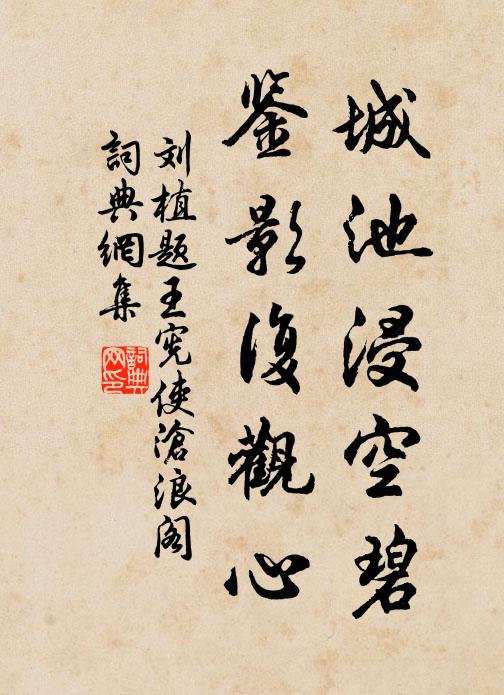 城池浸空碧
鉴影復觀心
刘植题王宪使滄浪阁
詞典網集
詞典網印